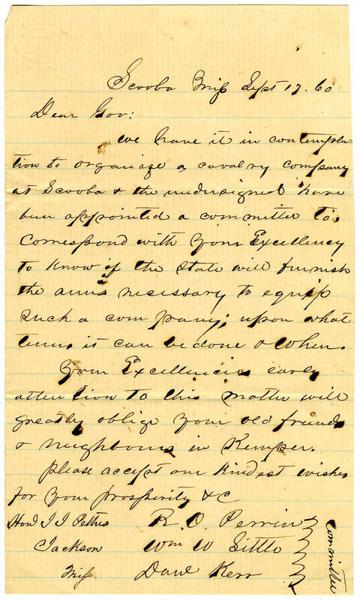 Scooba Miss Sept 17. 60
Dear Gov:
we have it in contempla-
tion to organize a cavalry company
at Scooba & the undersigned have
been appointed a committee to
correspond with Your Excellency
to know if the State will furnish
the arms necessary to equip
such a company; upon what
terms it can be done & when.
Your Excellencies early
attention to this matter will
greatly oblige your old friends
& neighbours in Kemper.
Please accept our kindest wishes
for your prosperity &C
Honl J J Pettus R. O. Perrin
Jackson Wm W Little
Miss Danl Kerr
Committee